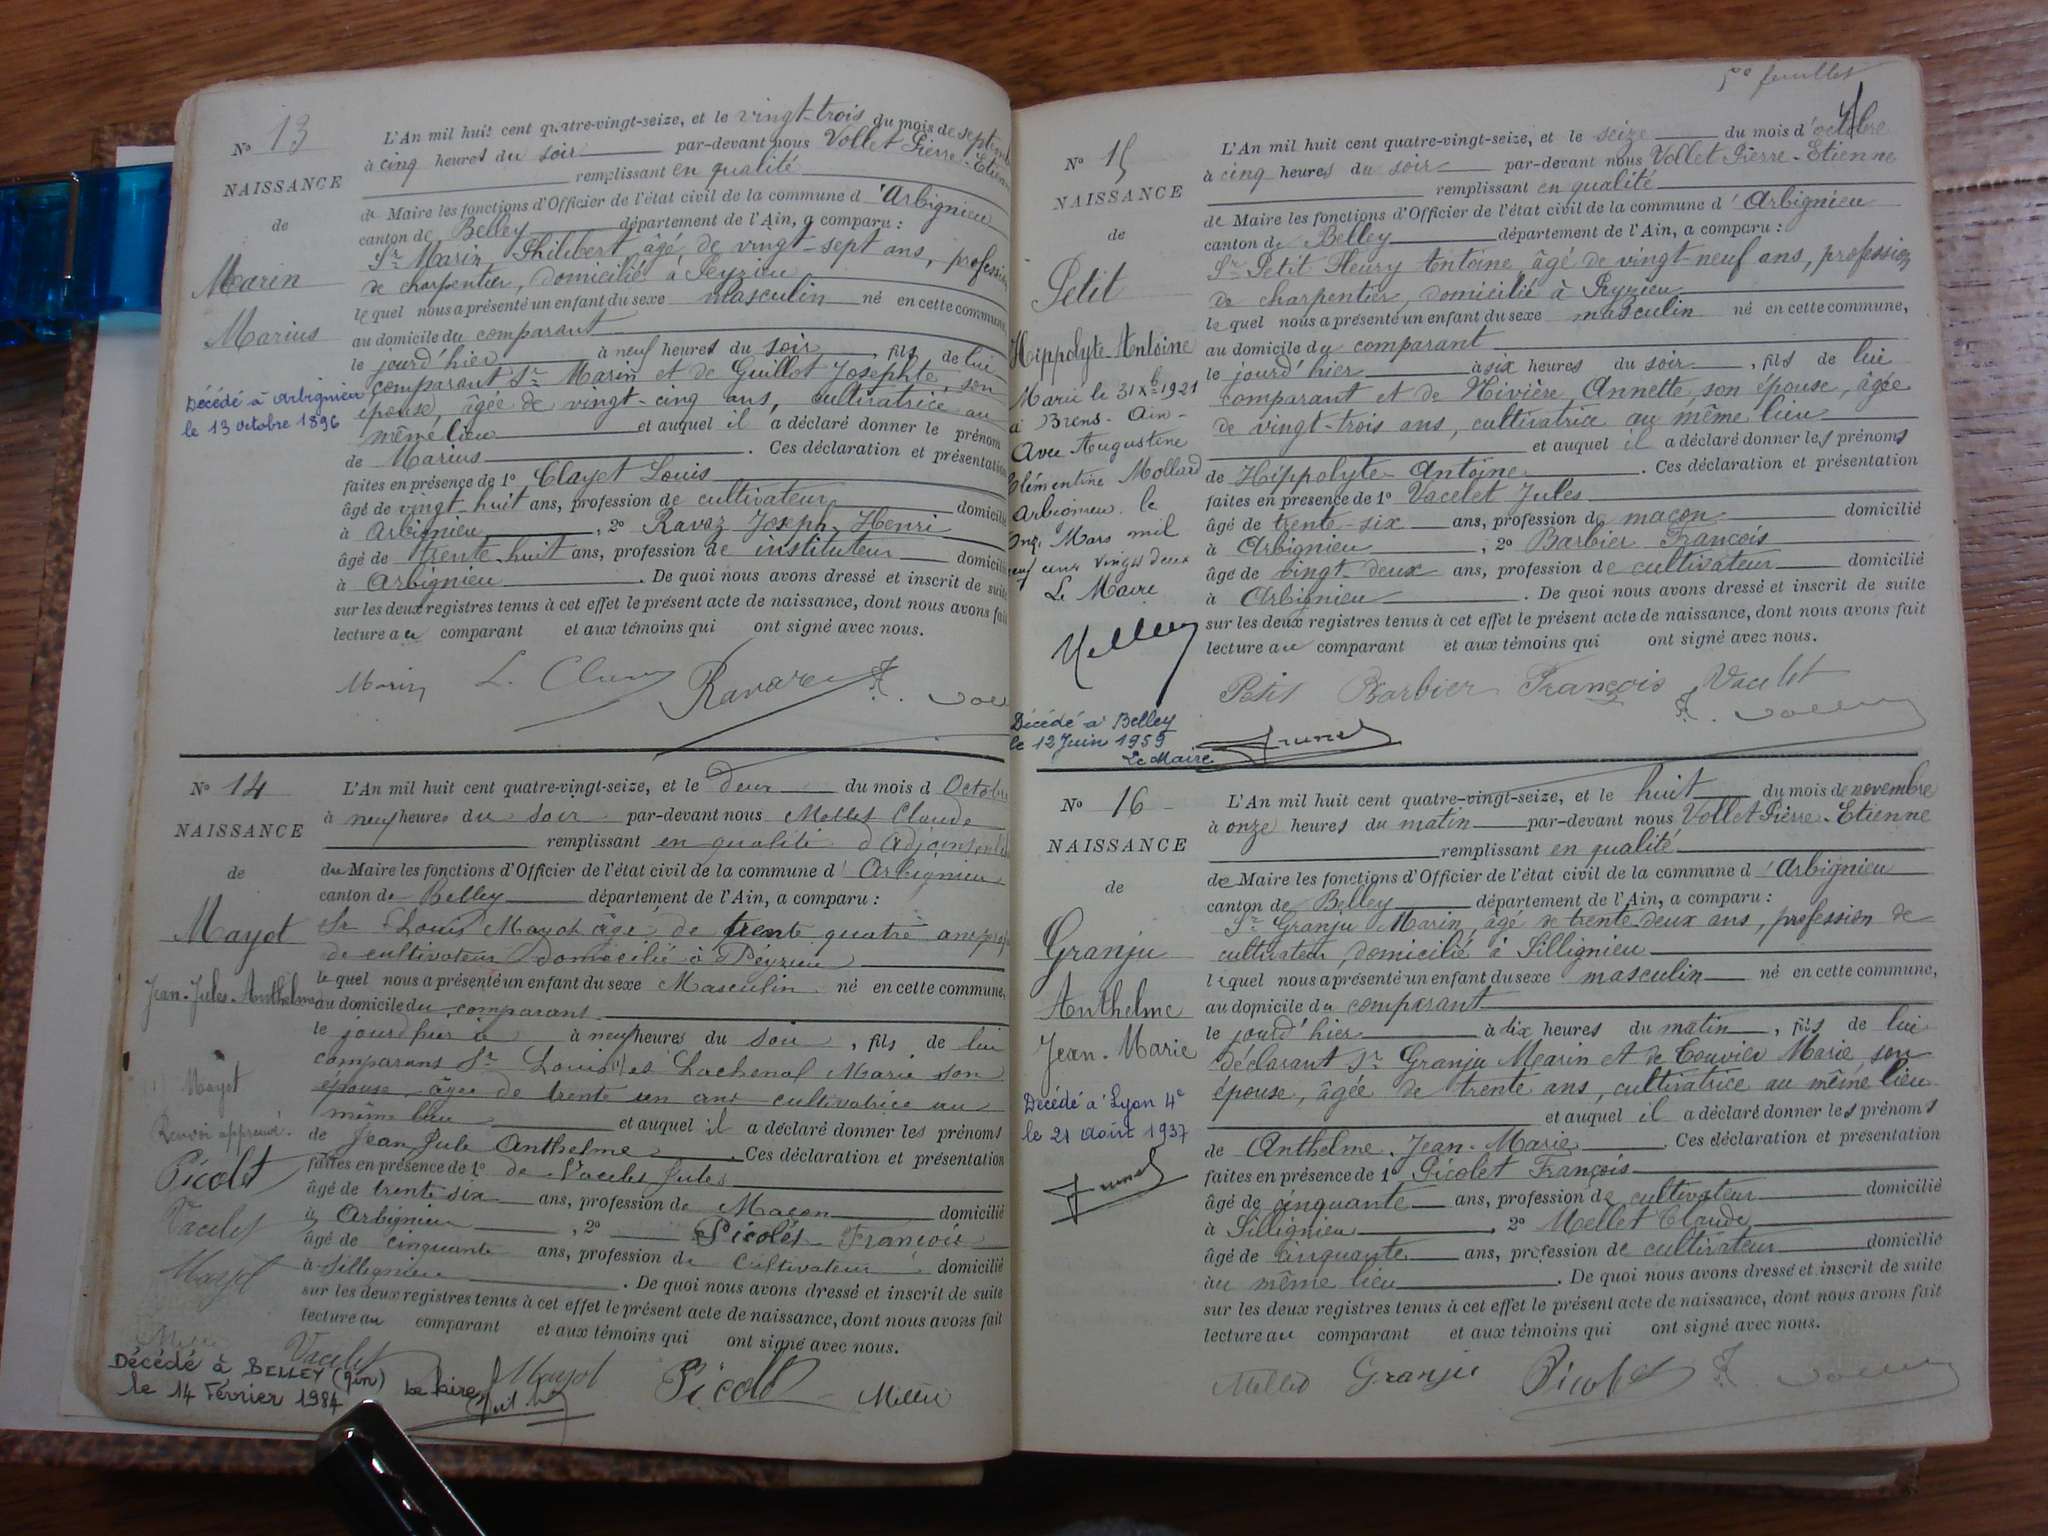 No 13
NAISSANCE
de
Marin
Marius
Décédé à Arbignieu
le 13 octobre 1896
L'An mil huit cent quatre-vingt-seize, et le vingt-trois du mois de septemb
à cinq heures du soir par-devant nous Vollet Pierre-Etienne
remplissant en qualité
de Maire les fonctions d'Officier de l'état civil de la commune d'Arbignieu
canton de Belley département de l'Ain, a comparu :
Sr Marin Philibert âgé de vingt-sept ans, profession
de charpentier, domicilié à Peyzieu
le quel nous a présenté un enfant du sexe masculin né en cette commune,
au domicile du comparant
le jourd'hier à neuf heures du soir, fils de lui
comparant Sr Marin et de Guillot Josephte, son
épouse, âgée de vingt-cinq ans, cultivatrice au
même lieu et auquel il a déclaré donner le prénom
de Marius. Ces déclaration et présentation
faites en présence de 1o Clayet Louis
âgé de vingt huit ans, profession de cultivateur domicilié
à Arbignieu, 2o Ravaz Joseph Henri
âgé de trente-huit ans, profession de instituteur domicilié
à Arbignieu. De quoi nous avons dressé et inscrit de suite
sur les deux registres tenus à cet effet le présent acte de naissance, dont nous avons fait
lecture au comparant et aux témoins qui ont signé avec nous.
Marin L. Ravaz
No 14
NAISSANCE
de
Mayot
Jean-Jules-Anthelme
Mayot
Renvoi approuvé.
Picolet
Vacelet
Mayot
Décédé à BELLEY (Ain)
le 14 Février 1984 Le Maire
L'An mil huit cent quatre-vingt-seize, et le deux du mois d Octobre
à neuf heures du soir par-devant nous Mellet Claude
remplissant en qualité d'Adjoint
du Maire les fonctions d'Officier de l'état civil de la commune d'Arbignieu
canton de Belley département de l'Ain, a comparu :
Sr Louis Mayot âgé de trente quatre ans
de cultivateur domicilié à Peyzieu
le quel nous a présenté un enfant du sexe Masculin né en cette commune,
au domicile du comparant
le jourd'hui à neuf heures du soir, fils de lui
comparant Sr Louis et Lachenal Marie son
épouse âgée de trente un ans cultivatrice au
même lieu et auquel il a déclaré donner les prénoms
de Jean Jule Anthelme. Ces déclaration et présentation
faites en présence de 1o de Vacelet Jules
âgé de trente six ans, profession de Maçon domicilié
à Arbignieu, 2o Picolet François
âgé de cinquante ans, profession de Cultivateur domicilié
à Sillignieu. De quoi nous avons dressé et inscrit de suite
sur les deux registres tenus à cet effet le présent acte de naissance, dont nous avons fait
lecture au comparant et aux témoins qui ont signé avec nous.
Vacelet Mayot Picolet Mellet
5e feuillet
No 15
NAISSANCE
de
Petit
Hippolyte Antoine
Marié le 31 Xbre 1921
à Brens - Ain -
Avec Augustine
Clémentine Mollard
Arbignieu le
Mars mil
neuf cent vingt deux
Le Maire
Mellet
Décédé à Belley
le 12 Juin 1959
Le Maire
L'An mil huit cent quatre-vingt-seize, et le seize du mois d'octobre
à cinq heures du soir par-devant nous Vollet Pierre-Etienne
remplissant en qualité
de Maire les fonctions d'Officier de l'état civil de la commune d'Arbignieu
canton de Belley département de l'Ain, a comparu :
Sr Petit Fleury Antoine âgé de vingt-neuf ans, profession
de charpentier, domicilié à Peyzieu
le quel nous a présenté un enfant du sexe masculin né en cette commune,
au domicile du comparant
le jourd'hier à six heures du soir, fils de lui
comparant et de Nivière, Annette, son épouse, âgée
de vingt-trois ans, cultivatrice au même lieu
et auquel il a déclaré donner les prénoms
de Hippolyte Antoine. Ces déclaration et présentation
faites en présence de 1o Vacelet Jules
âgé de trente-six ans, profession de maçon domicilié
à Arbignieu, 2o Barbier François
âgé de vingt-deux ans, profession de cultivateur domicilié
à Arbignieu. De quoi nous avons dressé et inscrit de suite
sur les deux registres tenus à cet effet le présent acte de naissance, dont nous avons fait
lecture au comparant et aux témoins qui ont signé avec nous.
Petit Barbier François Vacelet
No 16
NAISSANCE
de
Granju
Anthelme
Jean-Marie
Décédé à Lyon 4e
le 21 Août 1937
L'An mil huit cent quatre-vingt-seize, et le huit du mois de novembre
à onze heures du matin par-devant nous Vollet Pierre-Etienne
remplissant en qualité
de Maire les fonctions d'Officier de l'état civil de la commune d'Arbignieu
canton de Belley département de l'Ain, a comparu :
Sr Granju Marin, âgé de trente-deux ans, profession de
cultivateur, domicilié à Sillignieu
lequel nous a présenté un enfant du sexe masculin né en cette commune,
au domicile du comparant
le jourd'hier à dix heures du matin, fils de lui
déclarant Sr Granju Marin et de Touvier Marie son
épouse, âgée de trente ans, cultivatrice au même lieu
et auquel il a déclaré donner les prénoms
de Anthelme Jean-Marie. Ces déclaration et présentation
faites en présence de 1o Picolet François
âgé de cinquante ans, profession de cultivateur domicilié
à Sillignieu, 2o Mellet Claude,
âgé de cinquante ans, profession de cultivateur domicilié
au même lieu. De quoi nous avons dressé et inscrit de suite
sur les deux registres tenus à cet effet le présent acte de naissance, dont nous avons fait
lecture au comparant et aux témoins qui ont signé avec nous.
Mellet Granju Picolet